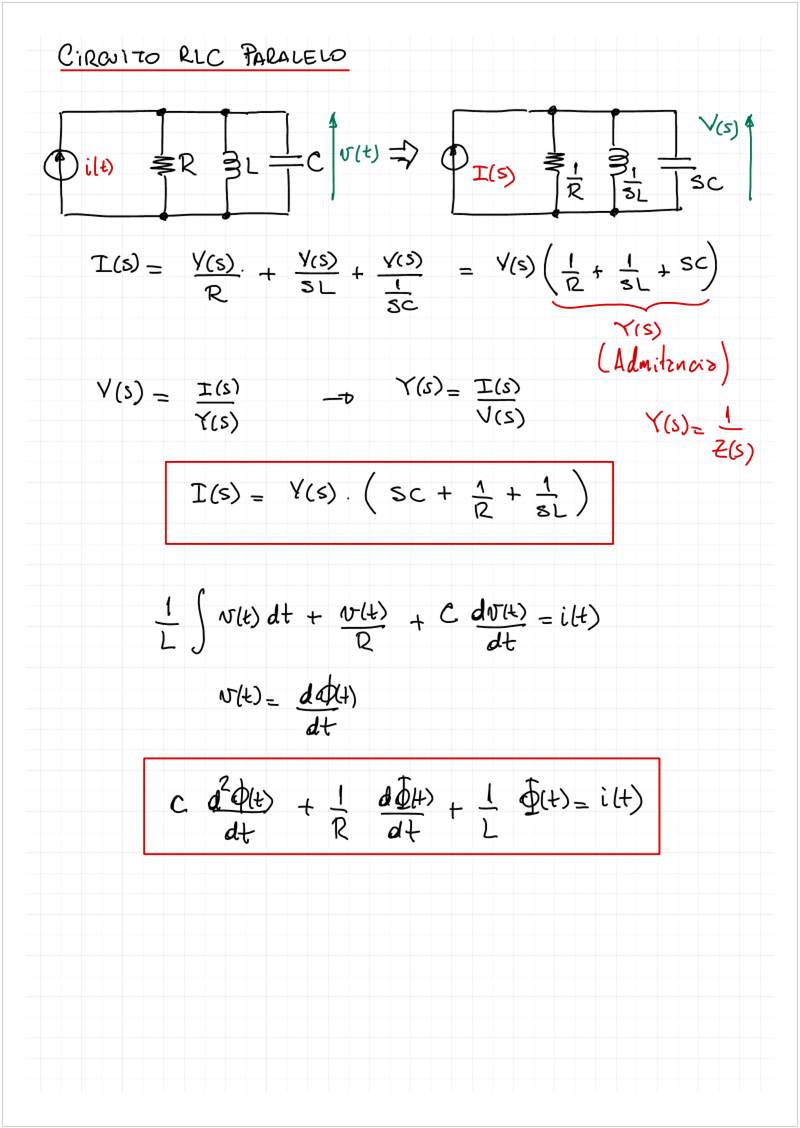 CIRCUITO RLC PARALELO
i(t) R L C v(t) ⇒ I(s) 1/R 1/sL sC V(s)
I(s) = V(s)/R + V(s)/sL + V(s)/(1/sC) = V(s) (1/R + 1/sL + sC)
Y(s)
(Admitancia)
V(s) = I(s)/Y(s) → Y(s) = I(s)/V(s)
Y(s) = 1/Z(s)
I(s) = V(s) . ( sC + 1/R + 1/sL )
1/L ∫ v(t) dt + v(t)/R + C dv(t)/dt = i(t)
v(t) = dΦ(t)/dt
C d²Φ(t)/dt + 1/R dΦ(t)/dt + 1/L Φ(t) = i(t)